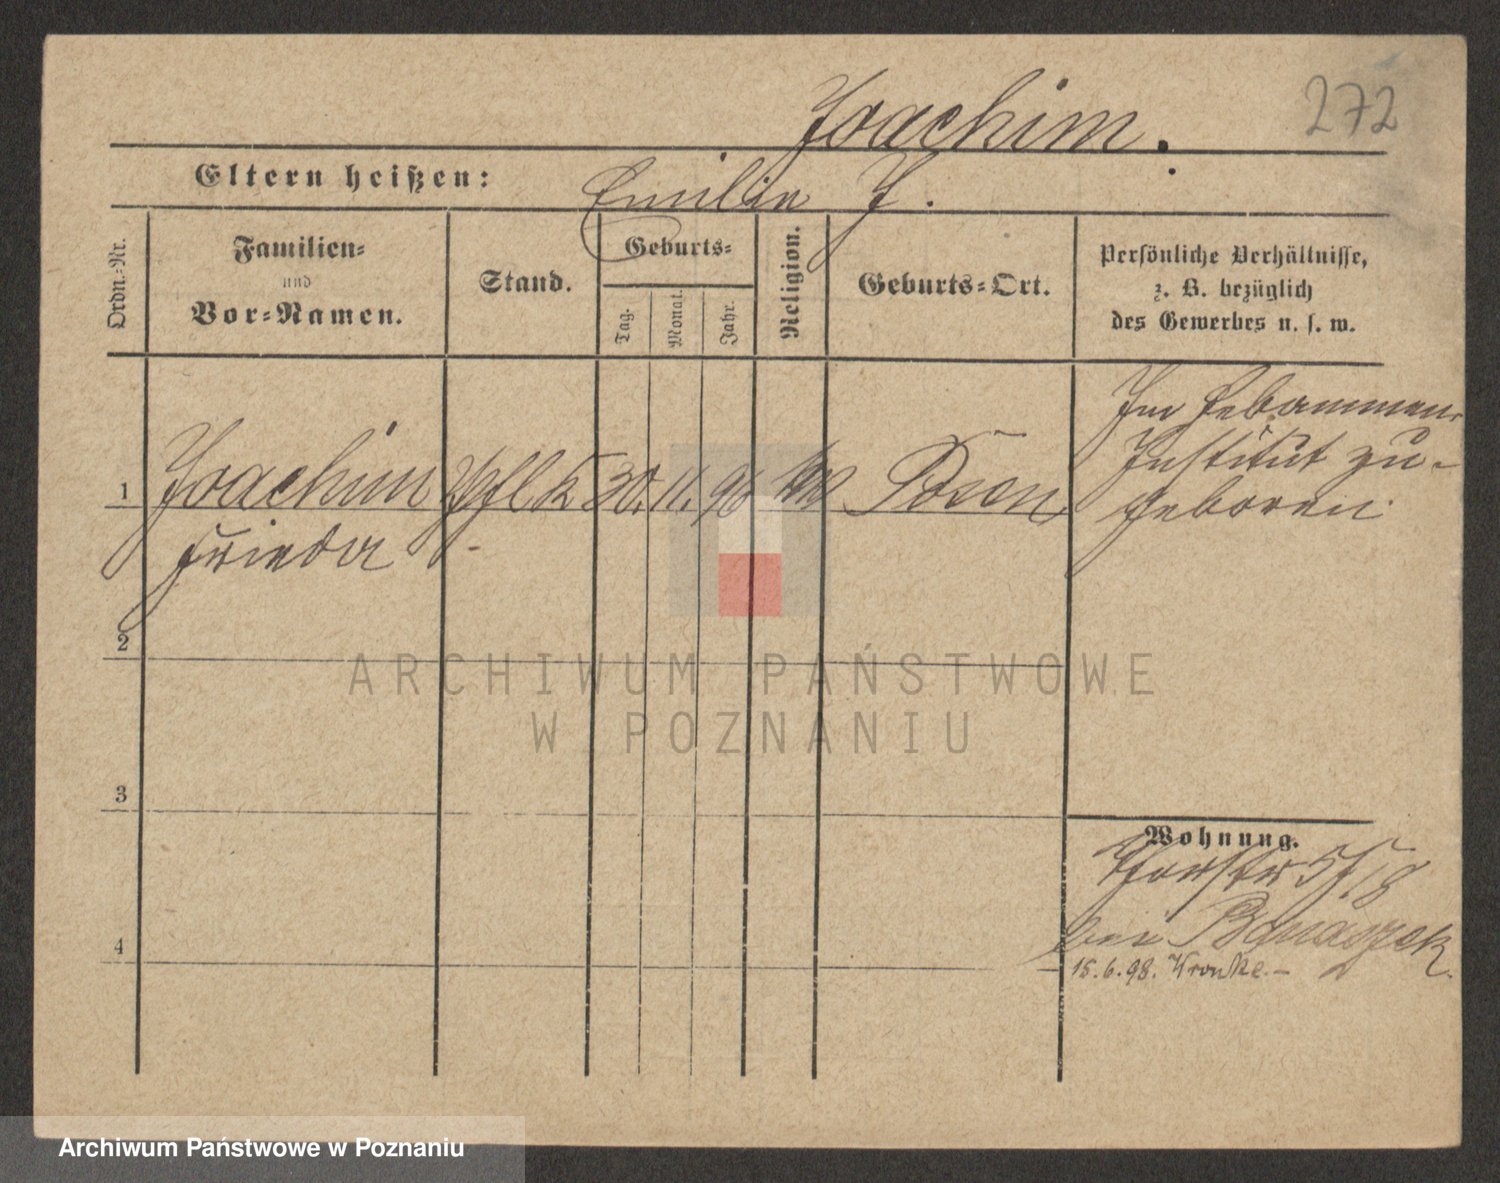 272
Joachim.
Eltern heißen: Emilie J.
Ordn.=Nr.
Familien=
und
Vor=Namen.
Stand.
Geburts=
Tag.
Monat.
Jahr.
Religion.
Geburts=Ort.
Persönliche Verhältnisse,
z. B. bezüglich
des Gewerbes u. s. w.
1 Joachim Pfl K 30. 11. 96 Posen
Frieda
Im Hebammen-
Institut zu-
geboren
2
3
4
Wohnung.
bei Banaszek
15. 6. 98. Wronke. –
ARCHIWUM PAŃSTWOWE
W POZNANIU
Archiwum Państwowe w Poznaniu